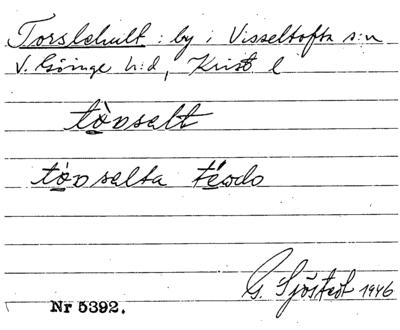 Torslehult : by i Visseltofta s:n
V. Göinge h:d, Krist l
tòvselt
tóvselta
G. Sjöstedt 1946
Nr 5392.